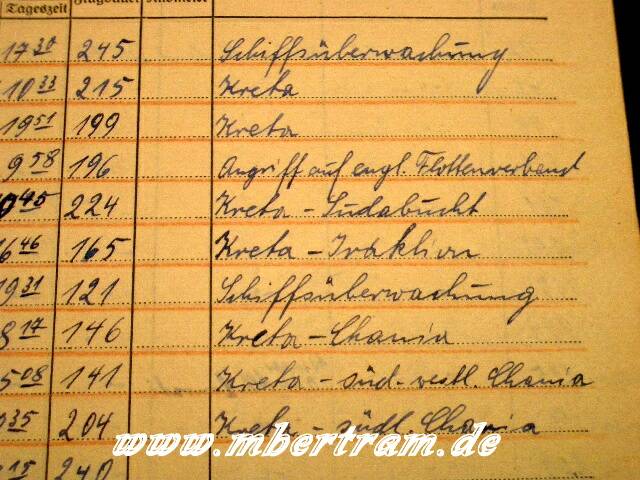 Tageszeit Flugdauer
17 30 245 Schiffsüberwachung
10 33 215 Kreta
19 51 199 Kreta
9 58 196 Angriff auf engl. Flottenverband
45 224 Kreta - Sudabucht
46 165 Kreta - Iraklion
31 121 Schiffsüberwachung
17 146 Kreta - Chania
08 141 Kreta - süd-westl. Chania
35 204 Kreta - südl. Chania
15 240
www.mbertram.de